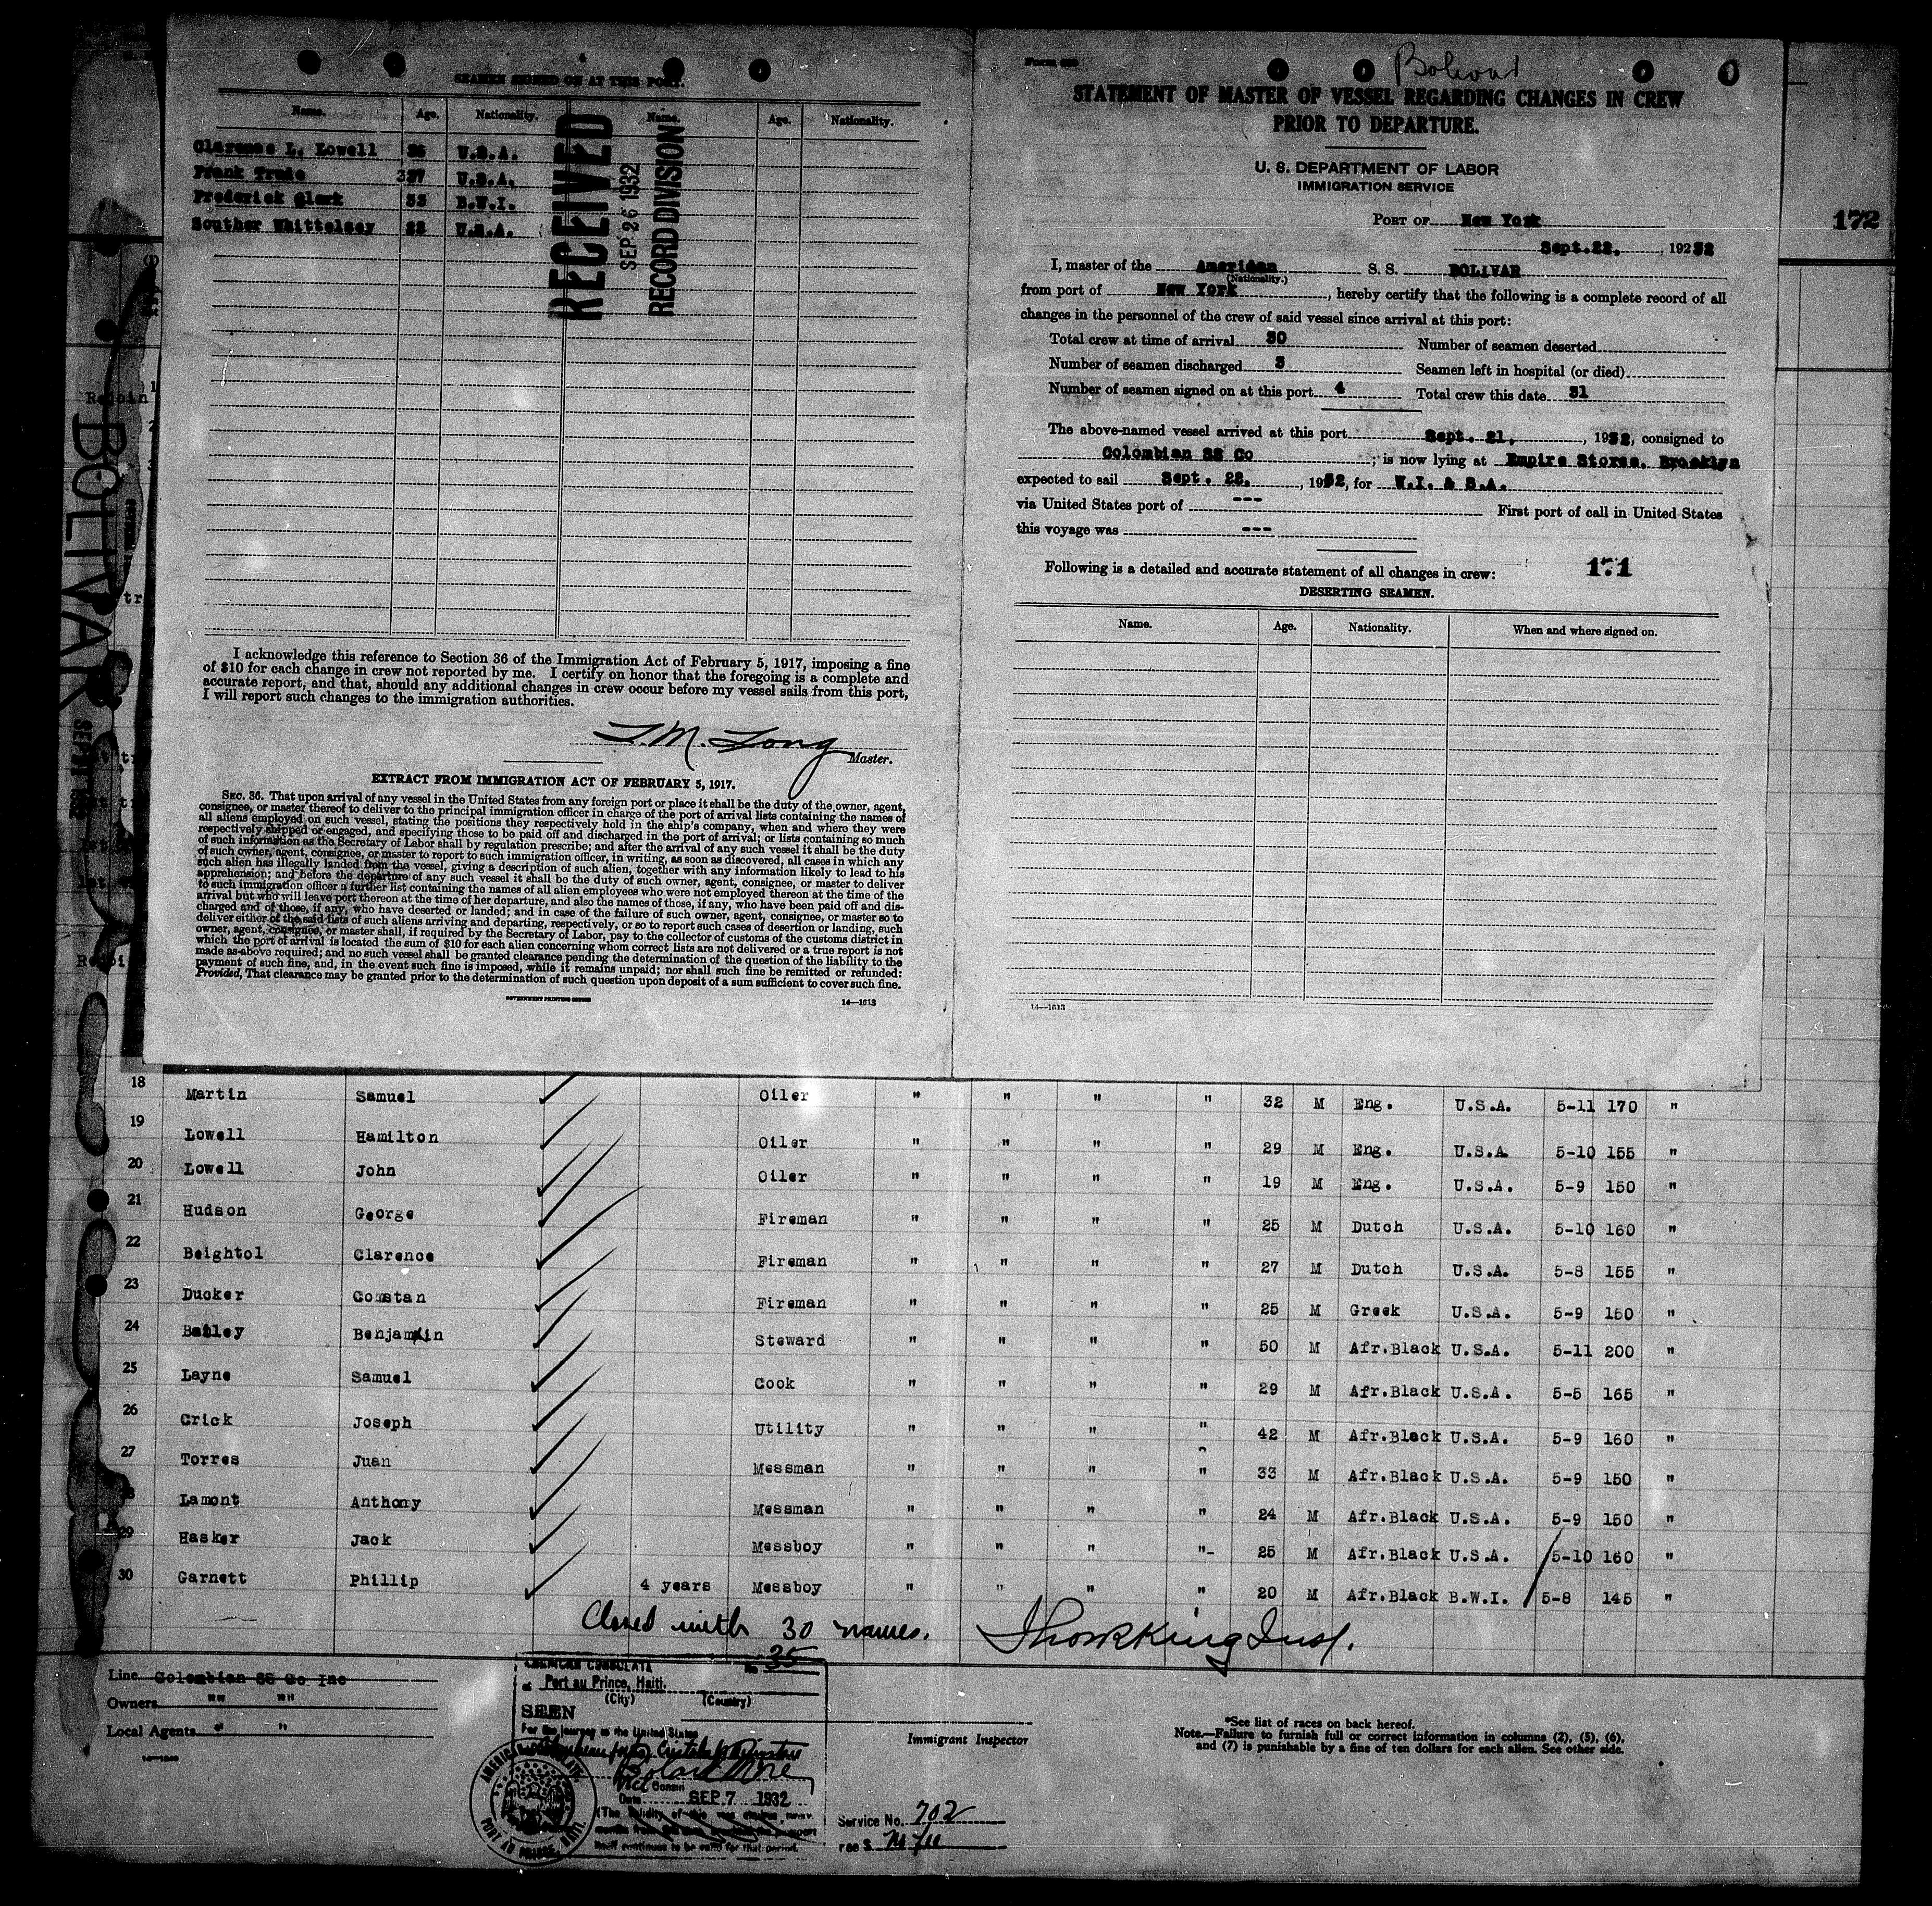 SEAMEN SIGNED ON AT THIS PORT.
Name. Age. Nationality. Name. Age. Nationality.
Clarence L. Lowell U.S.A.
Frank U.S.A.
Frederick Clark 33 B.W.I.
Souther Whittelsey U.S.A.
RECEIVED
SEP 26 1932
RECORD DIVISION
I acknowledge this reference to Section 36 of the Immigration Act of February 5, 1917, imposing a fine
of $10 for each change in crew not reported by me. I certify on honor that the foregoing is a complete and
accurate report, and that, should any additional changes in crew occur before my vessel sails from this port,
I will report such changes to the immigration authorities.
M. Long
Master.
EXTRACT FROM IMMIGRATION ACT OF FEBRUARY 5, 1917.
SEC. 36. That upon arrival of any vessel in the United States from any foreign port or place it shall be the duty of the owner, agent,
consignee, or master thereof to deliver to the principal immigration officer in charge of the port of arrival lists containing the names of
all aliens employed on such vessel, stating the positions they respectively hold in the ship's company, when and where they were
respectively shipped or engaged, and specifying those to be paid off and discharged in the port of arrival; or lists containing so much
of such information as the Secretary of Labor shall by regulation prescribe; and after the arrival of any such vessel it shall be the duty
of such owner, agent, consignee, or master to report to such immigration officer, in writing, as soon as discovered, all cases in which any
such alien has illegally landed from the vessel, giving a description of such alien, together with any information likely to lead to his
apprehension; and before the departure of any such vessel it shall be the duty of such owner, agent, consignee, or master to deliver
to such immigration officer a further list containing the names of all alien employees who were not employed thereon at the time of the
arrival but who will leave port thereon at the time of her departure, and also the names of those, if any, who have been paid off and dis-
charged and of those, if any, who have deserted or landed; and in case of the failure of such owner, agent, consignee, or master so to
deliver either of the said lists of such aliens arriving and departing, respectively, or so to report such cases of desertion or landing, such
owner, agent, consignee, or master shall, if required by the Secretary of Labor, pay to the collector of customs of the customs district in
which the port of arrival is located the sum of $10 for each alien concerning whom correct lists are not delivered or a true report is not
made as above required; and no such vessel shall be granted clearance pending the determination of the question of the liability to the
payment of such fine, and, in the event such fine is imposed, while it remains unpaid; nor shall such fine be remitted or refunded:
Provided, That clearance may be granted prior to the determination of such question upon deposit of a sum sufficient to cover such fine.
GOVERNMENT PRINTING OFFICE 14—1613
Bolivar
STATEMENT OF MASTER OF VESSEL REGARDING CHANGES IN CREW
PRIOR TO DEPARTURE.
U. S. DEPARTMENT OF LABOR
IMMIGRATION SERVICE
PORT OF New York
Sept.22, 19232
I, master of the American S. S. BOLIVAR
(Nationality.)
from port of New York, hereby certify that the following is a complete record of all
changes in the personnel of the crew of said vessel since arrival at this port:
Total crew at time of arrival 30 Number of seamen deserted
Number of seamen discharged 3 Seamen left in hospital (or died)
Number of seamen signed on at this port 4 Total crew this date 31
The above-named vessel arrived at this port Sept. 21, 1932, consigned to
Colombian SS Co; is now lying at Empire Stores, Brooklyn
expected to sail Sept. 22, 1932, for W.I. & S.A.
via United States port of --- First port of call in United States
this voyage was ---
Following is a detailed and accurate statement of all changes in crew: 171
DESERTING SEAMEN.
Name. Age. Nationality. When and where signed on.
14—1613
172
BOLIVAR
18 Martin Samuel Oiler " " " " 32 M Eng. U.S.A. 5-11 170 "
19 Lowell Hamilton Oiler " " " " 29 M Eng. U.S.A. 5-10 155 "
20 Lowell John Oiler " " " " 19 M Eng. U.S.A. 5-9 150 "
21 Hudson George Fireman " " " " 25 M Dutch U.S.A. 5-10 160 "
22 Beightol Clarence Fireman " " " " 27 M Dutch U.S.A. 5-8 155 "
23 Ducker Constan Fireman " " " " 25 M Greek U.S.A. 5-9 150 "
24 Bailey Benjamin Steward " " " " 50 M Afr.Black U.S.A. 5-11 200 "
25 Layne Samuel Cook " " " " 29 M Afr.Black U.S.A. 5-5 165 "
26 Crick Joseph Utility " " " " 42 M Afr.Black U.S.A. 5-9 160 "
27 Torres Juan Messman " " " " 33 M Afr.Black U.S.A. 5-9 150 "
Lamont Anthony Messman " " " " 24 M Afr.Black U.S.A. 5-9 150 "
29 Hasker Jack Messboy " " " " 25 M Afr.Black U.S.A. 5-10 160 "
30 Garnett Phillip 4 years Messboy " " " " 20 M Afr.Black B.W.I. 5-8 145 "
Closed with 30 names.
Line Colombian SS Co Inc
Owners "" ""
Local Agents " "
AMERICAN CONSULATE No 35
at Port au Prince, Haiti.
(City) (Country)
SEEN
For the journey to the United States
Vice Consul
Date SEP 7 1932
Service No. 702
Fee $ No fee
Immigrant Inspector
*See list of races on back hereof.
Note.—Failure to furnish full or correct information in columns (2), (5), (6),
and (7) is punishable by a fine of ten dollars for each alien. See other side.